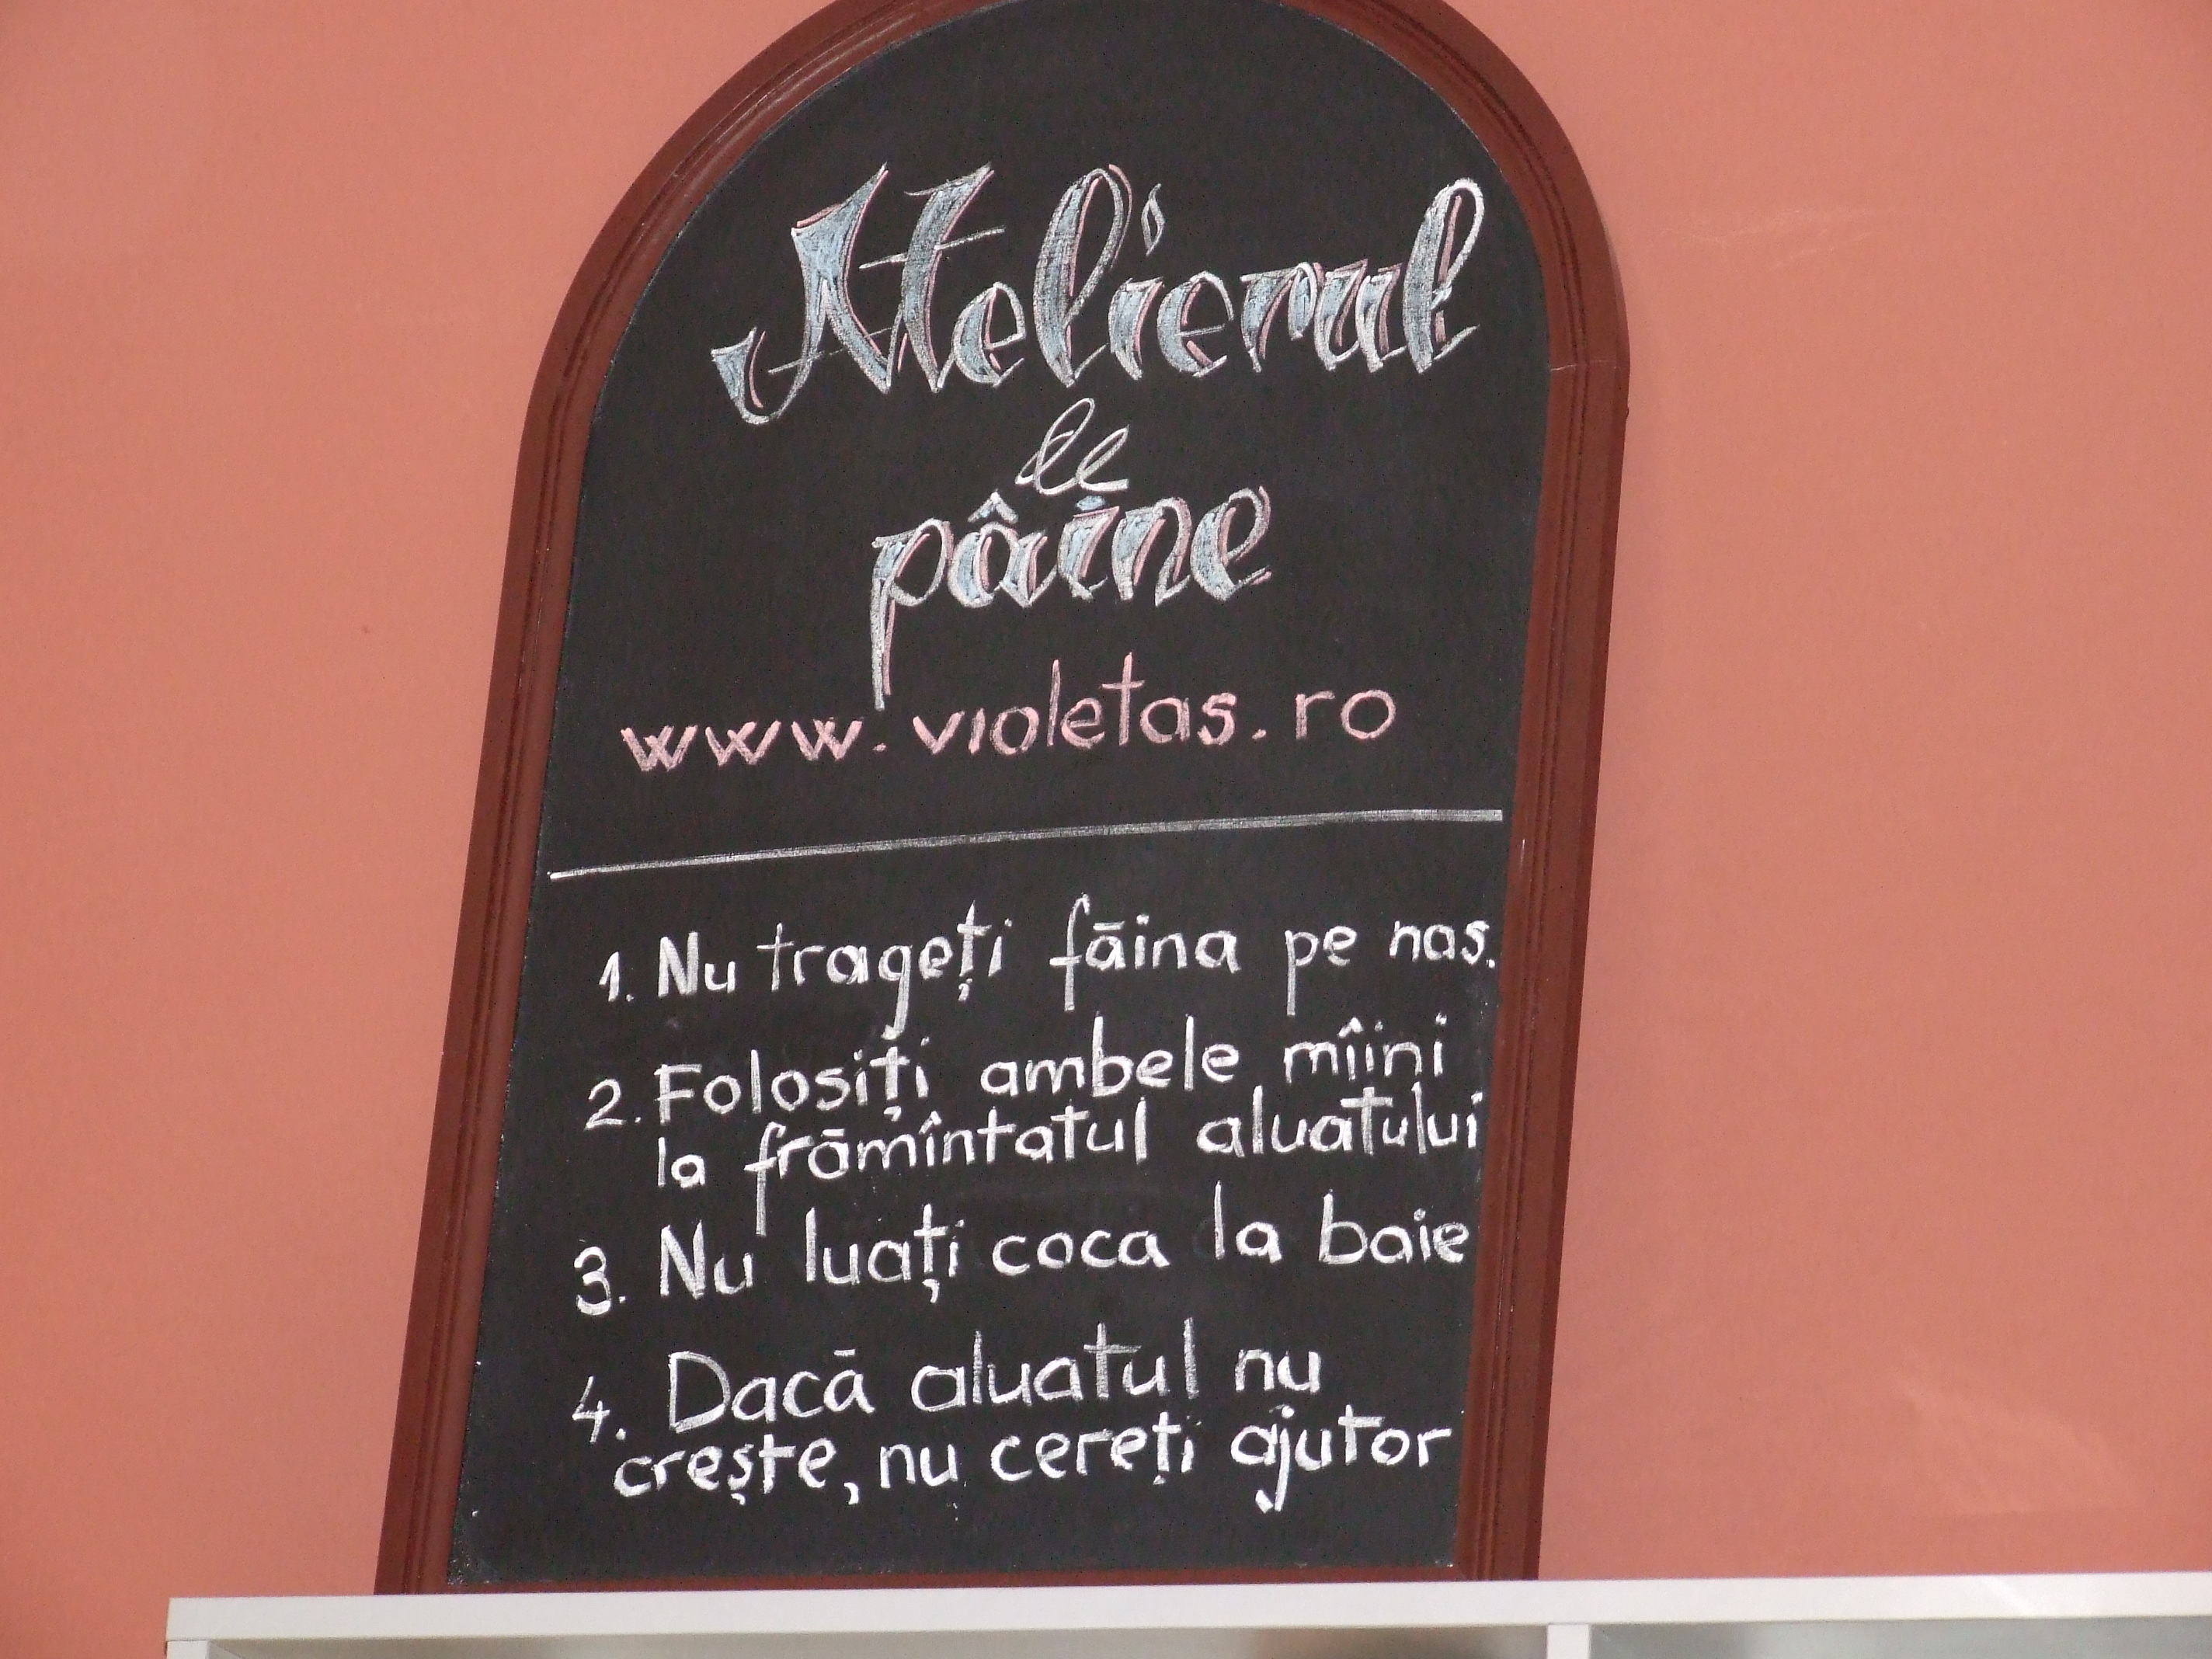 Atelierul
de
pâine
www.violetas.ro
1. Nu trageți fāina pe nas.
2. Folosiți ambele mîini
la frāmîntatul aluatului
3. Nu luați coca la baie
4. Dacā aluatul nu
crește, nu cereți ajutor